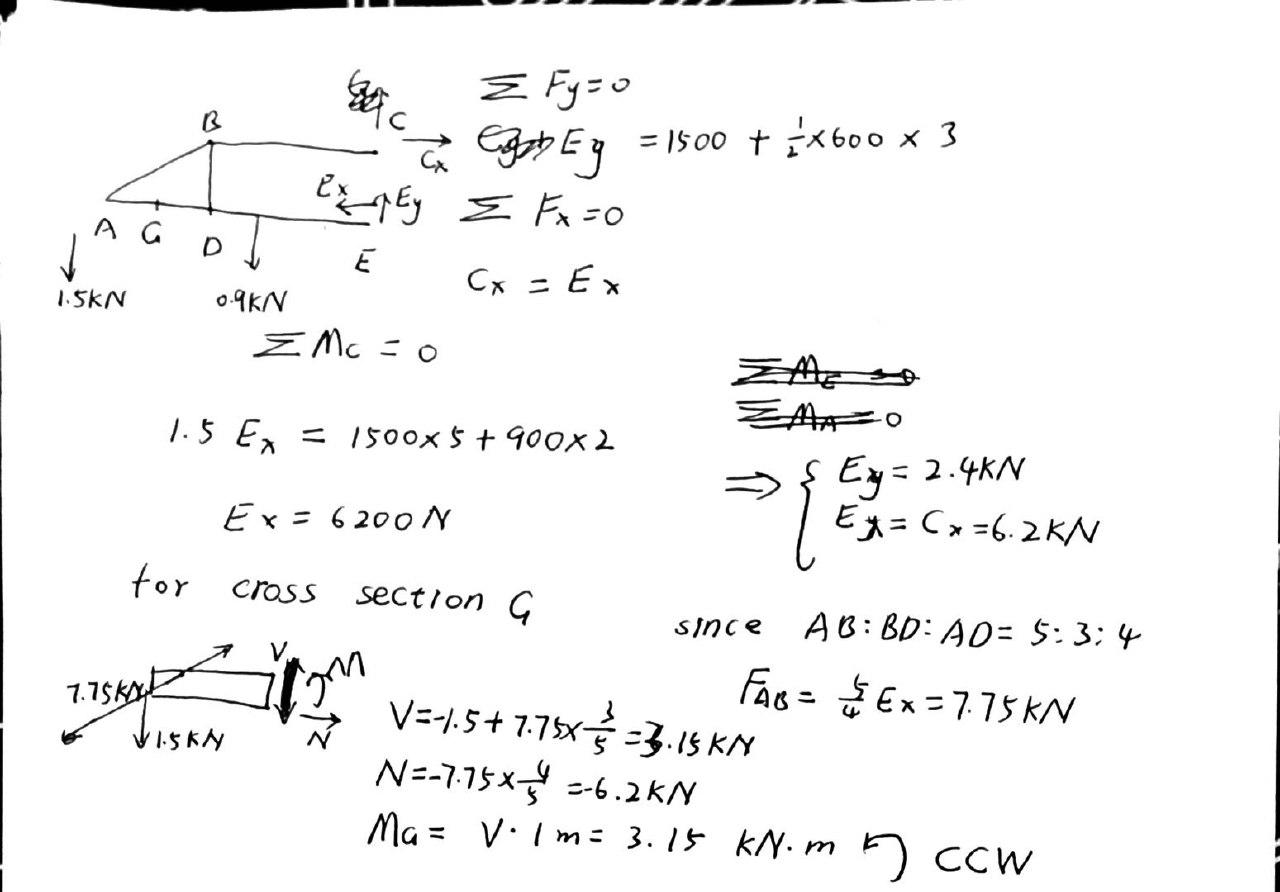 B
C
Cx
Ex
Ey
A G D
E
1.5KN
0.9KN
Σ Fy=0
Ey = 1500 + 1/2 × 600 × 3
Σ Fx=0
Cx = Ex
Σ Mc = 0
1.5 Ex = 1500×5 + 900×2
Ex = 6200N
Σ ME = 0
Σ MA = 0
⇒ { Ey = 2.4KN
Ex = Cx = 6.2KN
for cross section G
since AB:BD:AD = 5:3:4
FAB = 5/4 Ex = 7.75KN
7.75KN
1.5KN
V
M
N
V=-1.5+7.75×3/5=3.15KN
N=-7.75×4/5=-6.2KN
MG = V·1m = 3.15 kN.m CCW